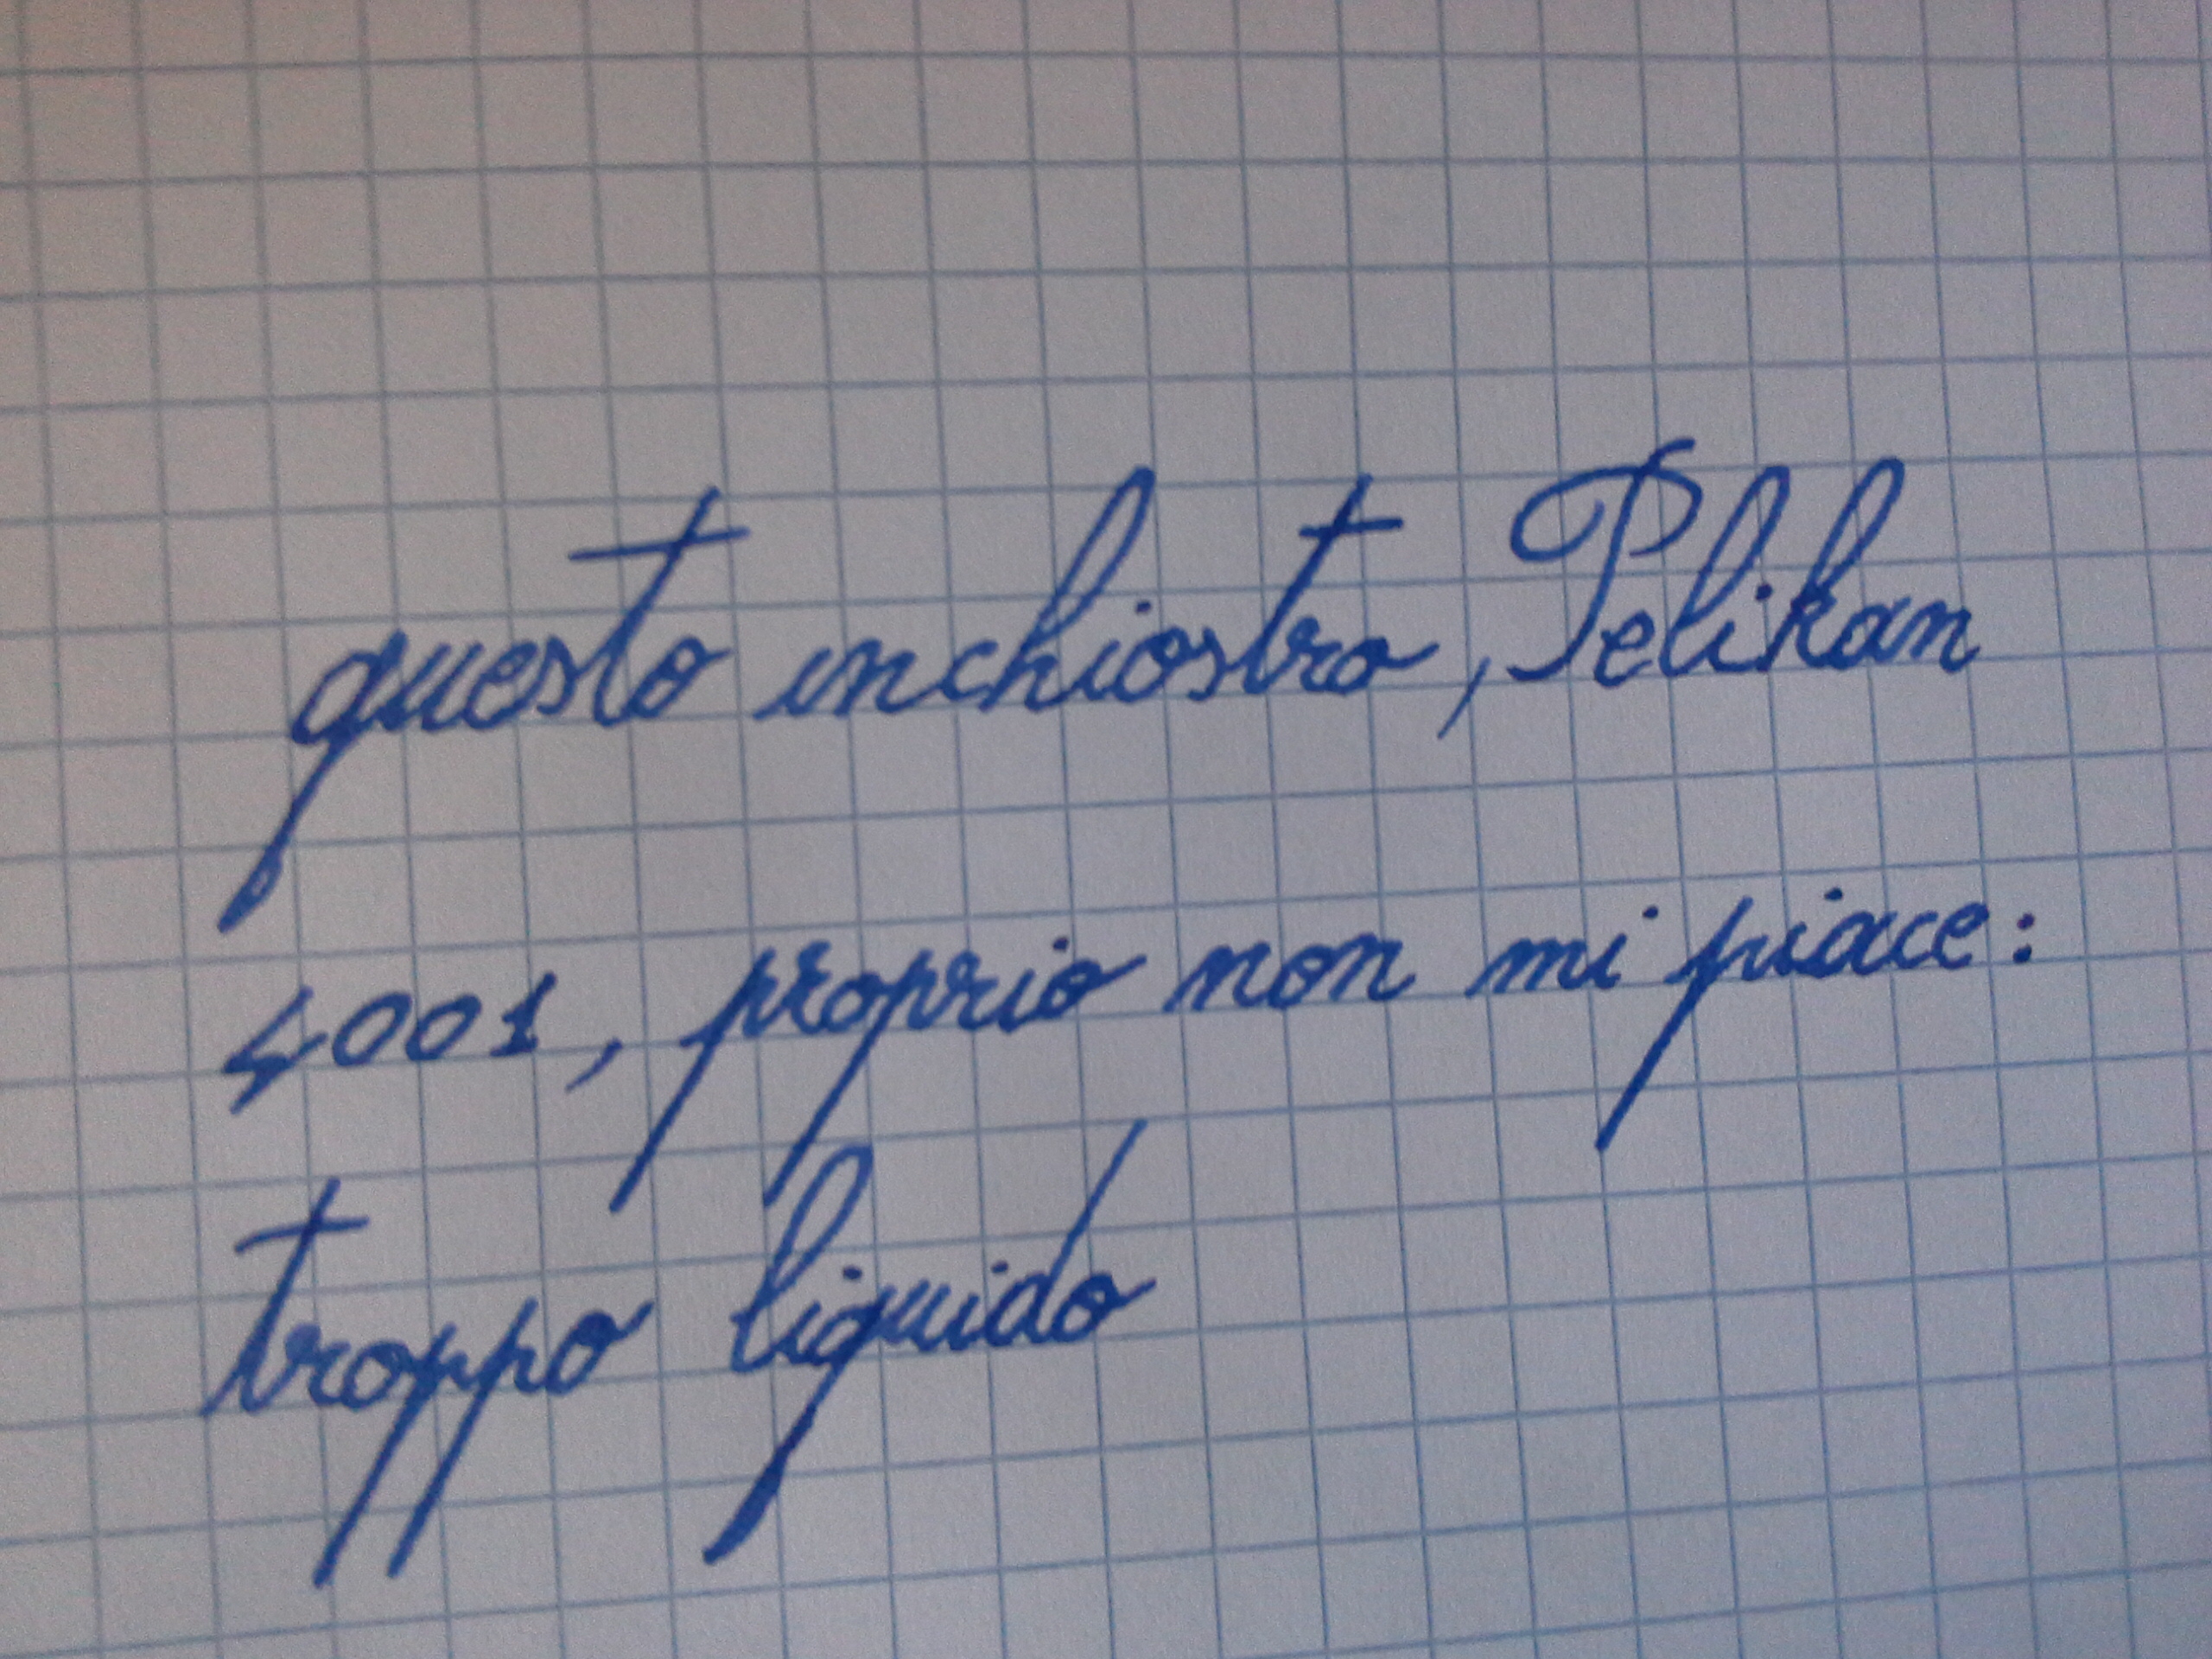 questo inchiostro, Pelikan
4001, proprio non mi piace:
troppo liquido